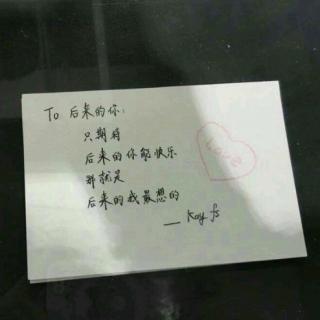 To 后来的你:
只期待
后来的你能快乐
那就是
后来的我最想的
Love